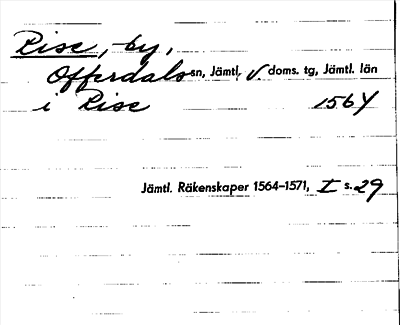 Rise, by,
Offerdals sn, Jämtl. V. doms. tg, Jämtl. län
i Rise 1564
Jämtl. Räkenskaper 1564–1571, I s. 29